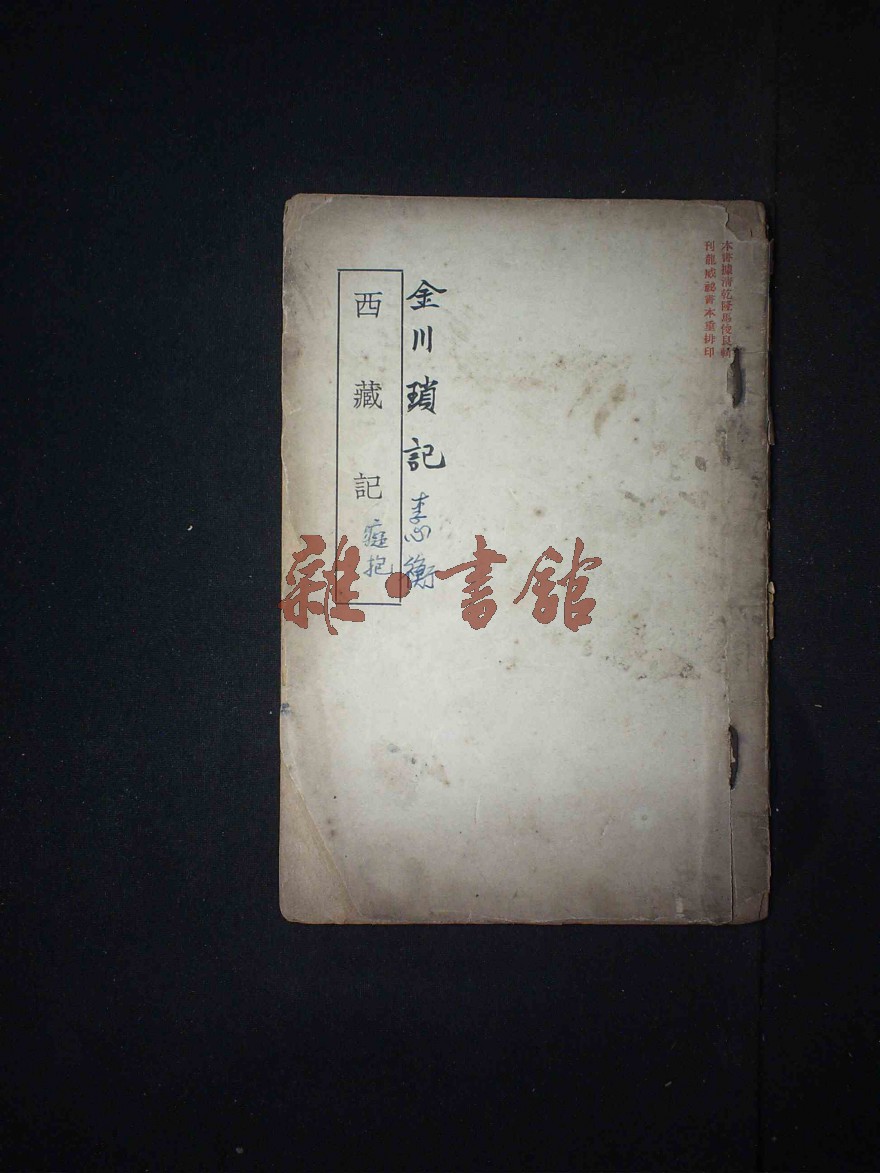 本書據清乾隆馬俊良輯
刊龍威祕書本重排印
金川瑣記 李心衡
西藏記 癡抱
雜·書館